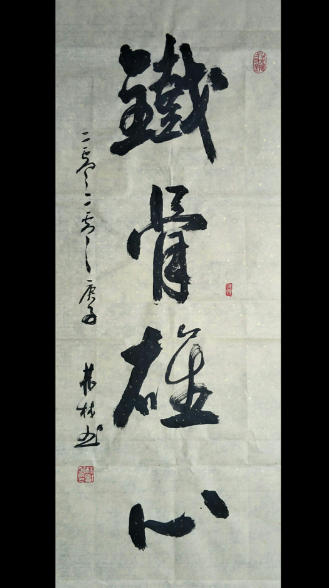 鐵骨雄心
二零二零庚子
林书